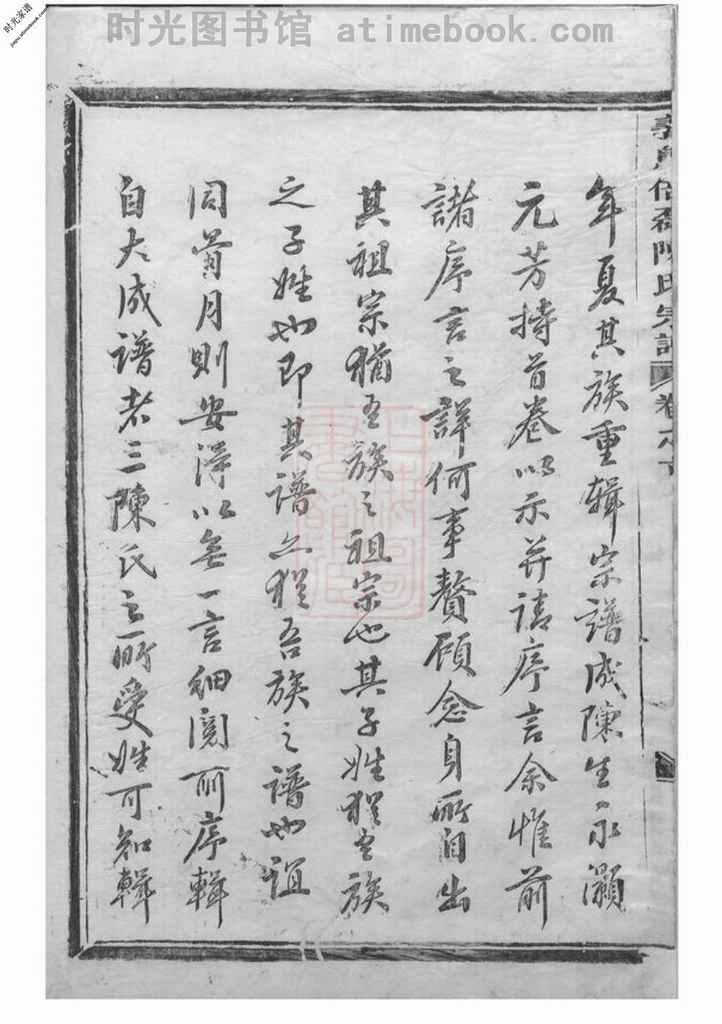 时光图书馆 atimebook.com
时光家谱
年夏其族重輯宗譜成陳生永灝
元芳持首卷以示并請序言余惟前
諸序言之詳何事贅顧念身所自出
其祖宗猶吾族之祖宗也其子姓猶吾族
之子姓也即其譜亦猶吾族之譜也誼
同一則安得以無一言細閱所序輯
自大成譜者三陳氏之所受姓可知輯
陳氏宗譜 卷之首